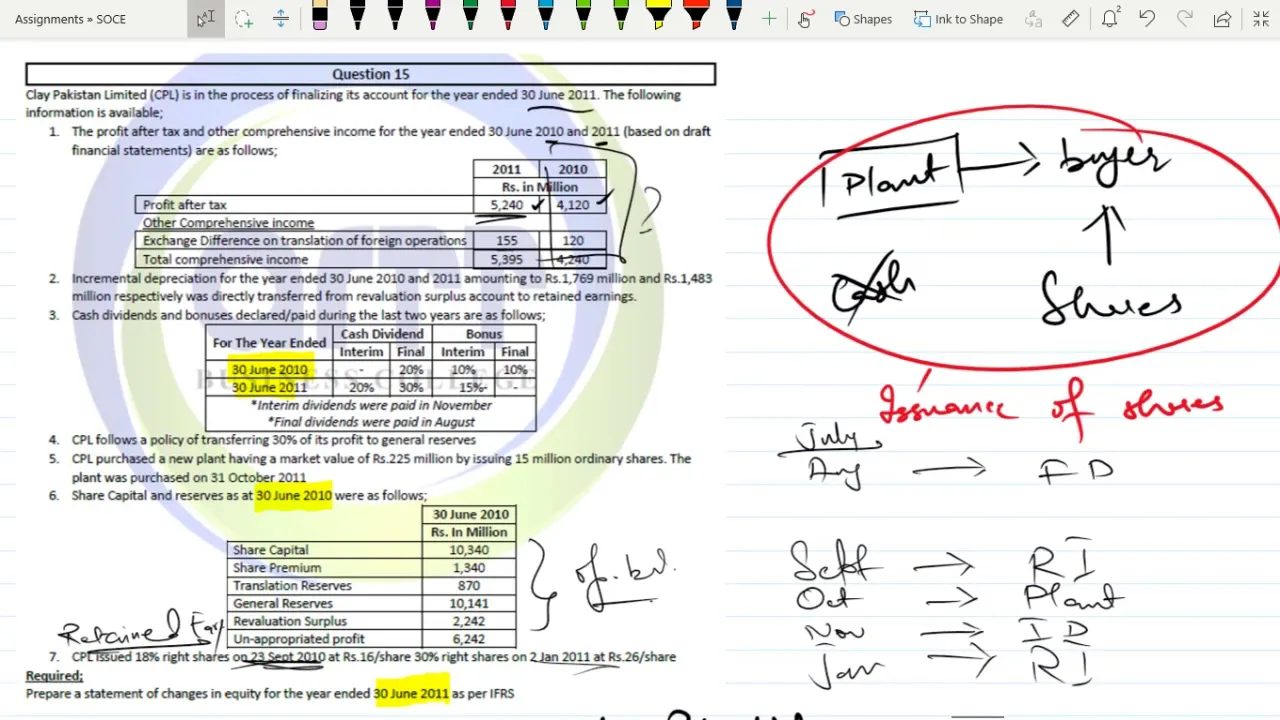 Assignments » SOCE
Shapes
Ink to Shape
2
Question 15
Clay Pakistan Limited (CPL) is in the process of finalizing its account for the year ended 30 June 2011. The following
information is available;
1. The profit after tax and other comprehensive income for the year ended 30 June 2010 and 2011 (based on draft
financial statements) are as follows;
2011 2010
Rs. in Million
Profit after tax 5,240 4,120
Other Comprehensive income
Exchange Difference on translation of foreign operations 155 120
Total comprehensive income 5,395 4,240
?
2. Incremental depreciation for the year ended 30 June 2010 and 2011 amounting to Rs.1,769 million and Rs.1,483
million respectively was directly transferred from revaluation surplus account to retained earnings.
3. Cash dividends and bonuses declared/paid during the last two years are as follows;
For The Year Ended Cash Dividend Bonus
Interim Final Interim Final
30 June 2010 - 20% 10% 10%
30 June 2011 20% 30% 15%- -
*Interim dividends were paid in November
*Final dividends were paid in August
4. CPL follows a policy of transferring 30% of its profit to general reserves
5. CPL purchased a new plant having a market value of Rs.225 million by issuing 15 million ordinary shares. The
plant was purchased on 31 October 2011
6. Share Capital and reserves as at 30 June 2010 were as follows;
30 June 2010
Rs. In Million
Share Capital 10,340
Share Premium 1,340
Translation Reserves 870
General Reserves 10,141
Revaluation Surplus 2,242
Un-appropriated profit 6,242
Retained Ear
7. CPL issued 18% right shares on 23 Sept 2010 at Rs.16/share 30% right shares on 2 Jan 2011 at Rs.26/share
Required;
Prepare a statement of changes in equity for the year ended 30 June 2011 as per IFRS
BUSINESS COLLEGE
Plant buyer
Cash Shares
Issuance of shares
July
Aug F D
Sept R I
Oct Plant
Nov I D
Jan R I